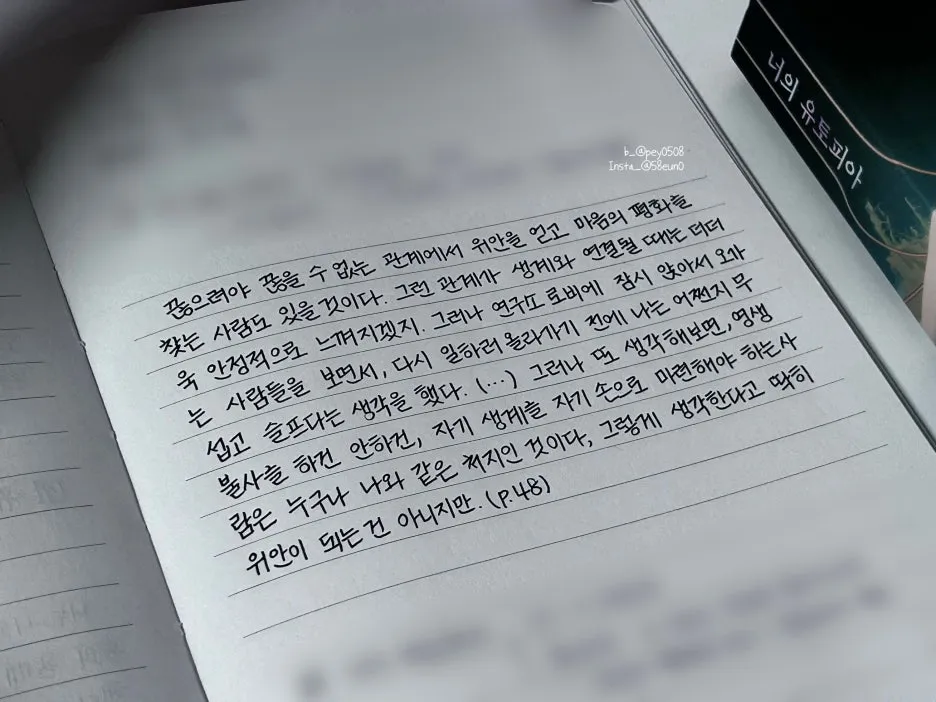 너의 유토피아
b_@pey0508
Insta_@58eun0
끊으려야 끊을 수 없는 관계에서 위안을 얻고 마음의 평화를
찾는 사람도 있을 것이다. 그런 관계가 생계와 연결될 때는 더더
욱 안정적으로 느껴지겠지. 그러나 연구소 로비에 잠시 앉아서 오가
는 사람들을 보면서, 다시 일하러 올라가기 전에 나는 어쩐지 무
섭고 슬프다는 생각을 했다. (...) 그러나 또 생각해보면, 영생
불사를 하건 안하건, 자기 생계를 자기 손으로 마련해야 하는 사
람은 누구나 나와 같은 처지인 것이다, 그렇게 생각한다고 딱히
위안이 되는 건 아니지만. (p.48)